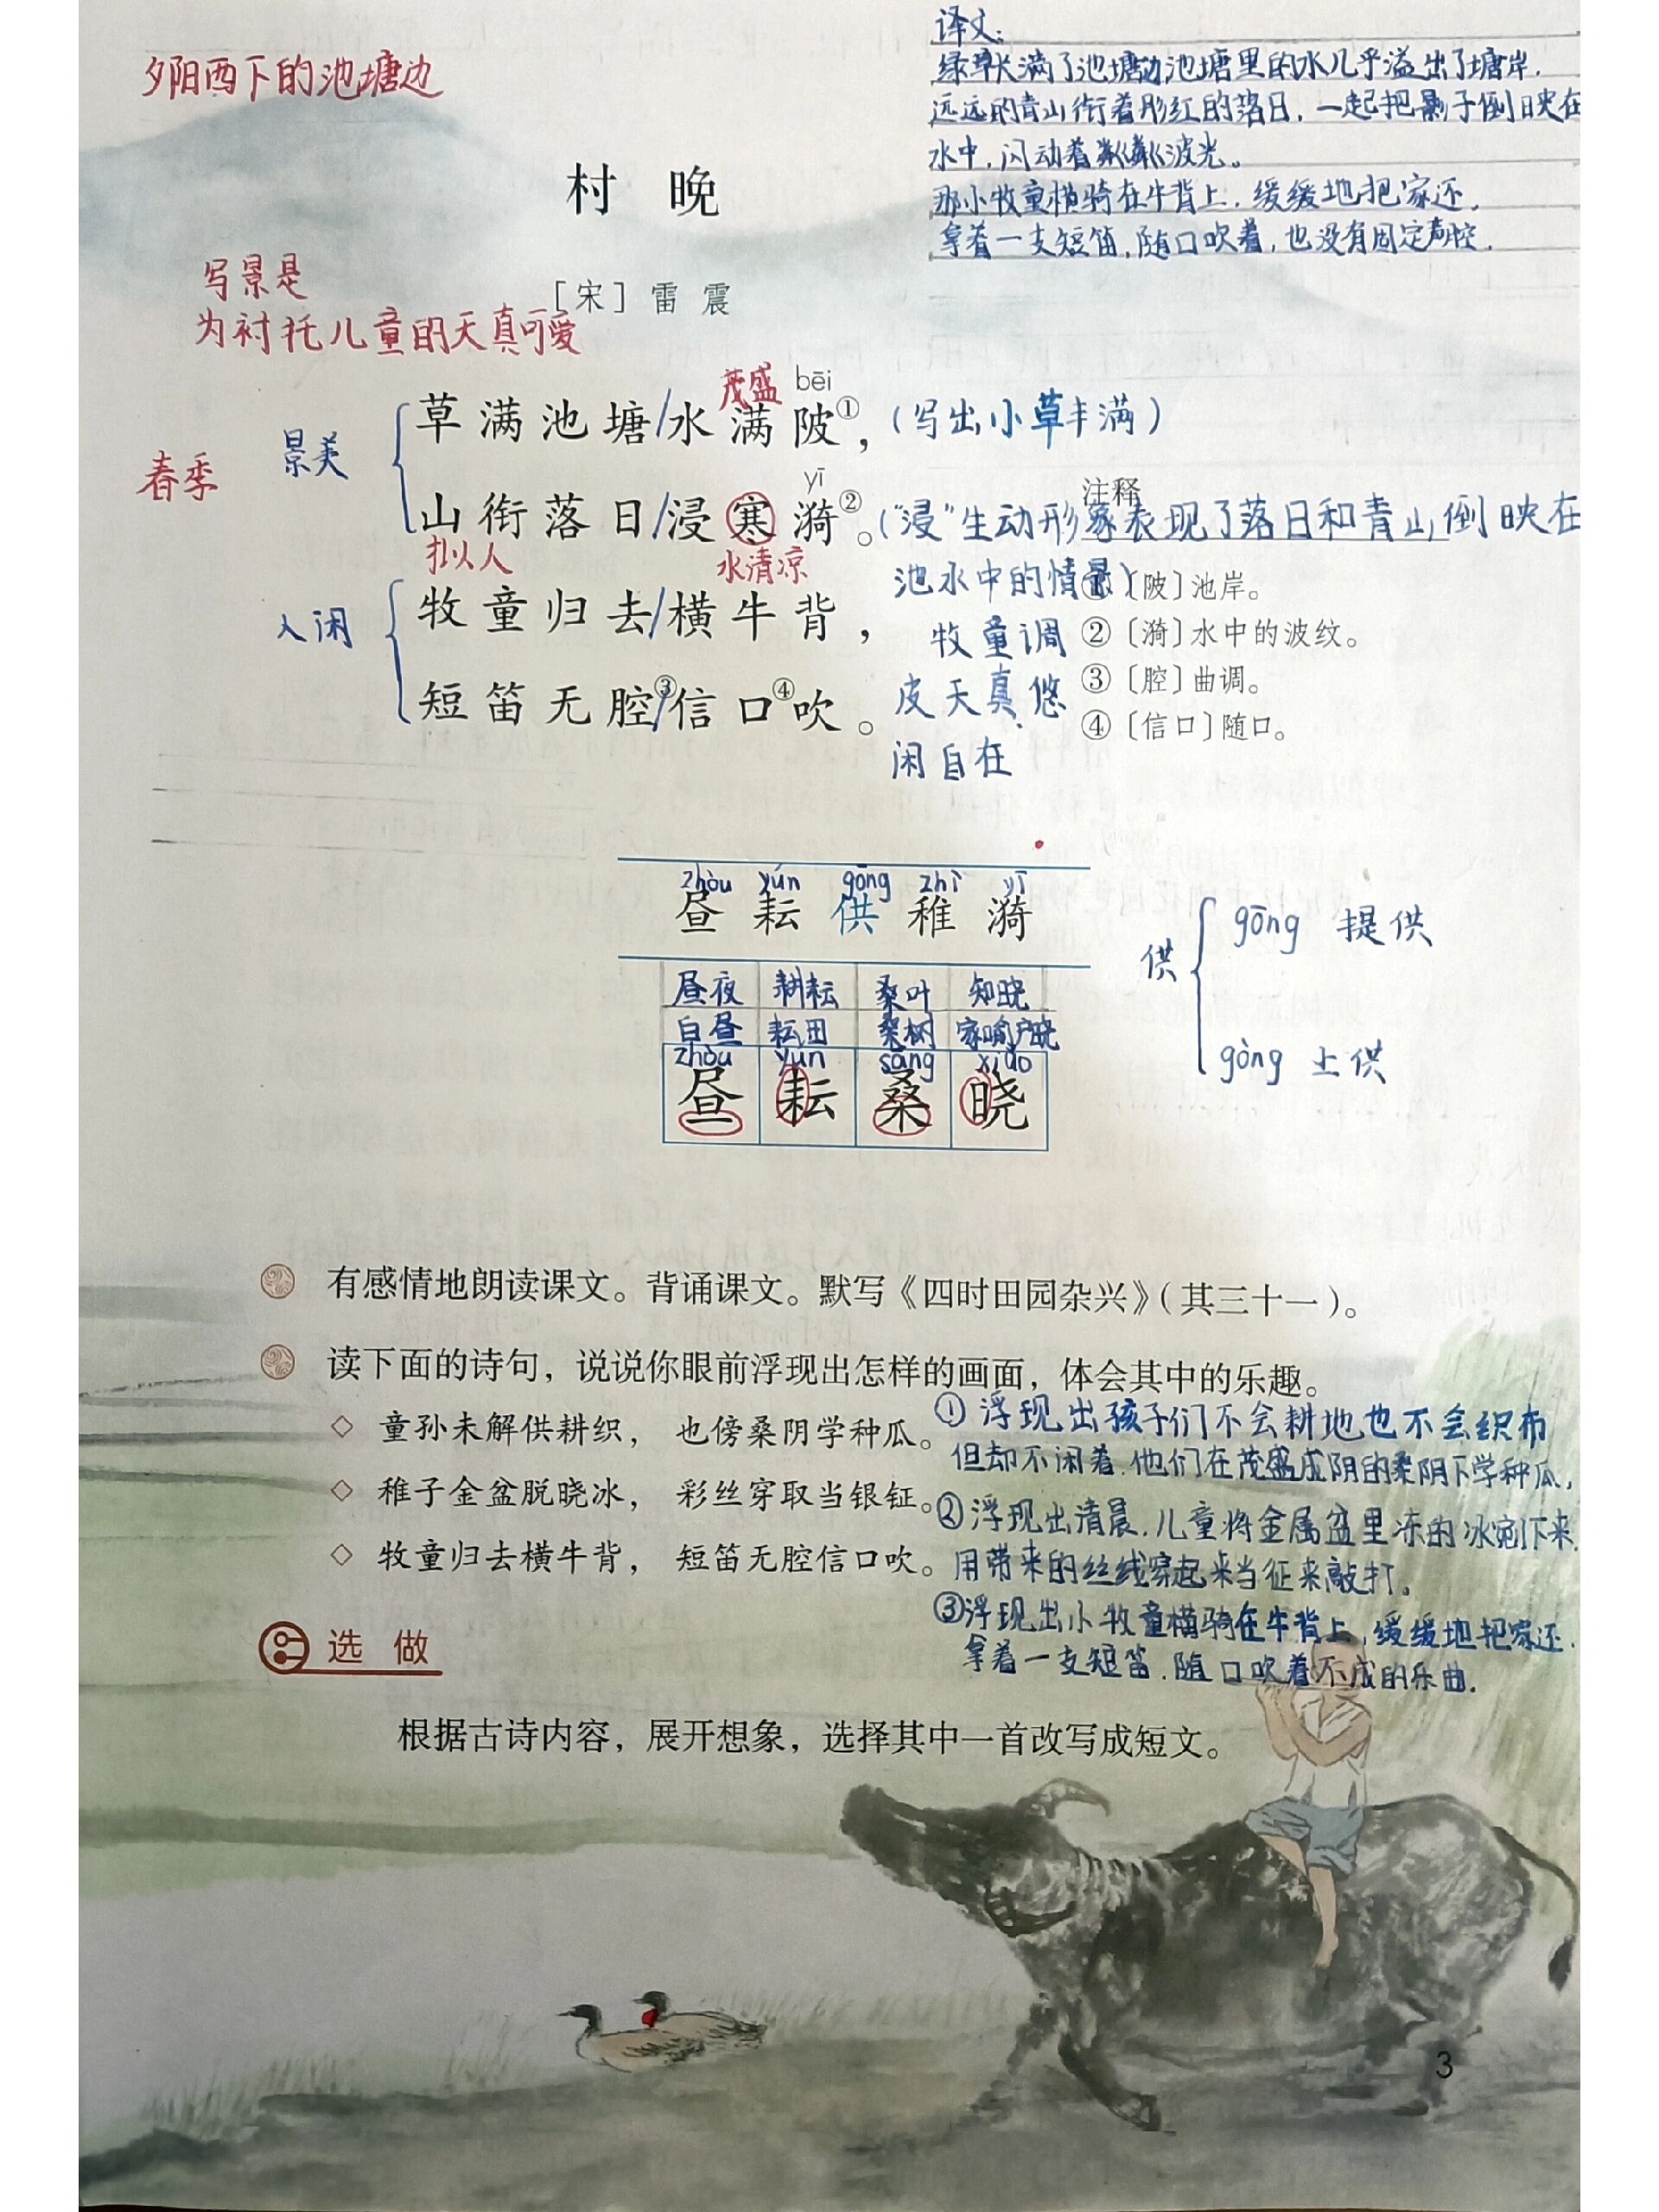 译文:
绿草长满了池塘边池塘里的水几乎溢出了塘岸.
远远的青山衔着彤红的落日.一起把影子倒映在
水中,闪动着粼粼波光。
那小牧童横骑在牛背上.缓缓地把家还.
拿着一支短笛.随口吹着,也没有固定声腔.
夕阳西下的池塘边
村 晚
写景是
为衬托儿童的天真可爱
[宋] 雷 震
茂盛 bēi
草满池塘/水满陂①,(写出小草丰满)
春季 景美
yī
注释
山衔落日/浸寒漪②。("浸"生动形象表现了落日和青山倒映在
拟人 水清凉
池水中的情景)
① 〔陂〕池岸。
人闲
牧童归去/横牛背,
牧童调
② 〔漪〕水中的波纹。
皮天真.悠
③ 〔腔〕曲调。
短笛无腔③/信口④吹。
④ 〔信口〕随口。
闲自在
zhòu yún gōng zhì yī
昼 耘 供 稚 漪
供 gōng 提供
gòng 上供
昼夜 耕耘 桑叶 知晓
白昼 耘田 桑树 家喻户晓
zhòu yún sāng xiǎo
昼 耘 桑 晓
有感情地朗读课文。背诵课文。默写《四时田园杂兴》(其三十一)。
读下面的诗句,说说你眼前浮现出怎样的画面,体会其中的乐趣。
◇ 童孙未解供耕织, 也傍桑阴学种瓜。
①浮现出孩子们不会耕地也不会织布
但却不闲着.他们在茂盛成阴的桑阴下学种瓜,
◇ 稚子金盆脱晓冰, 彩丝穿取当银钲。
②浮现出清晨.儿童将金属盆里冻的冰剜下来.
用带来的丝线穿起来当征来敲打。
◇ 牧童归去横牛背, 短笛无腔信口吹。
③浮现出小牧童横骑在牛背上,缓缓地把家还.
拿着一支短笛.随口吹着不成的乐曲.
选 做
根据古诗内容,展开想象,选择其中一首改写成短文。
3